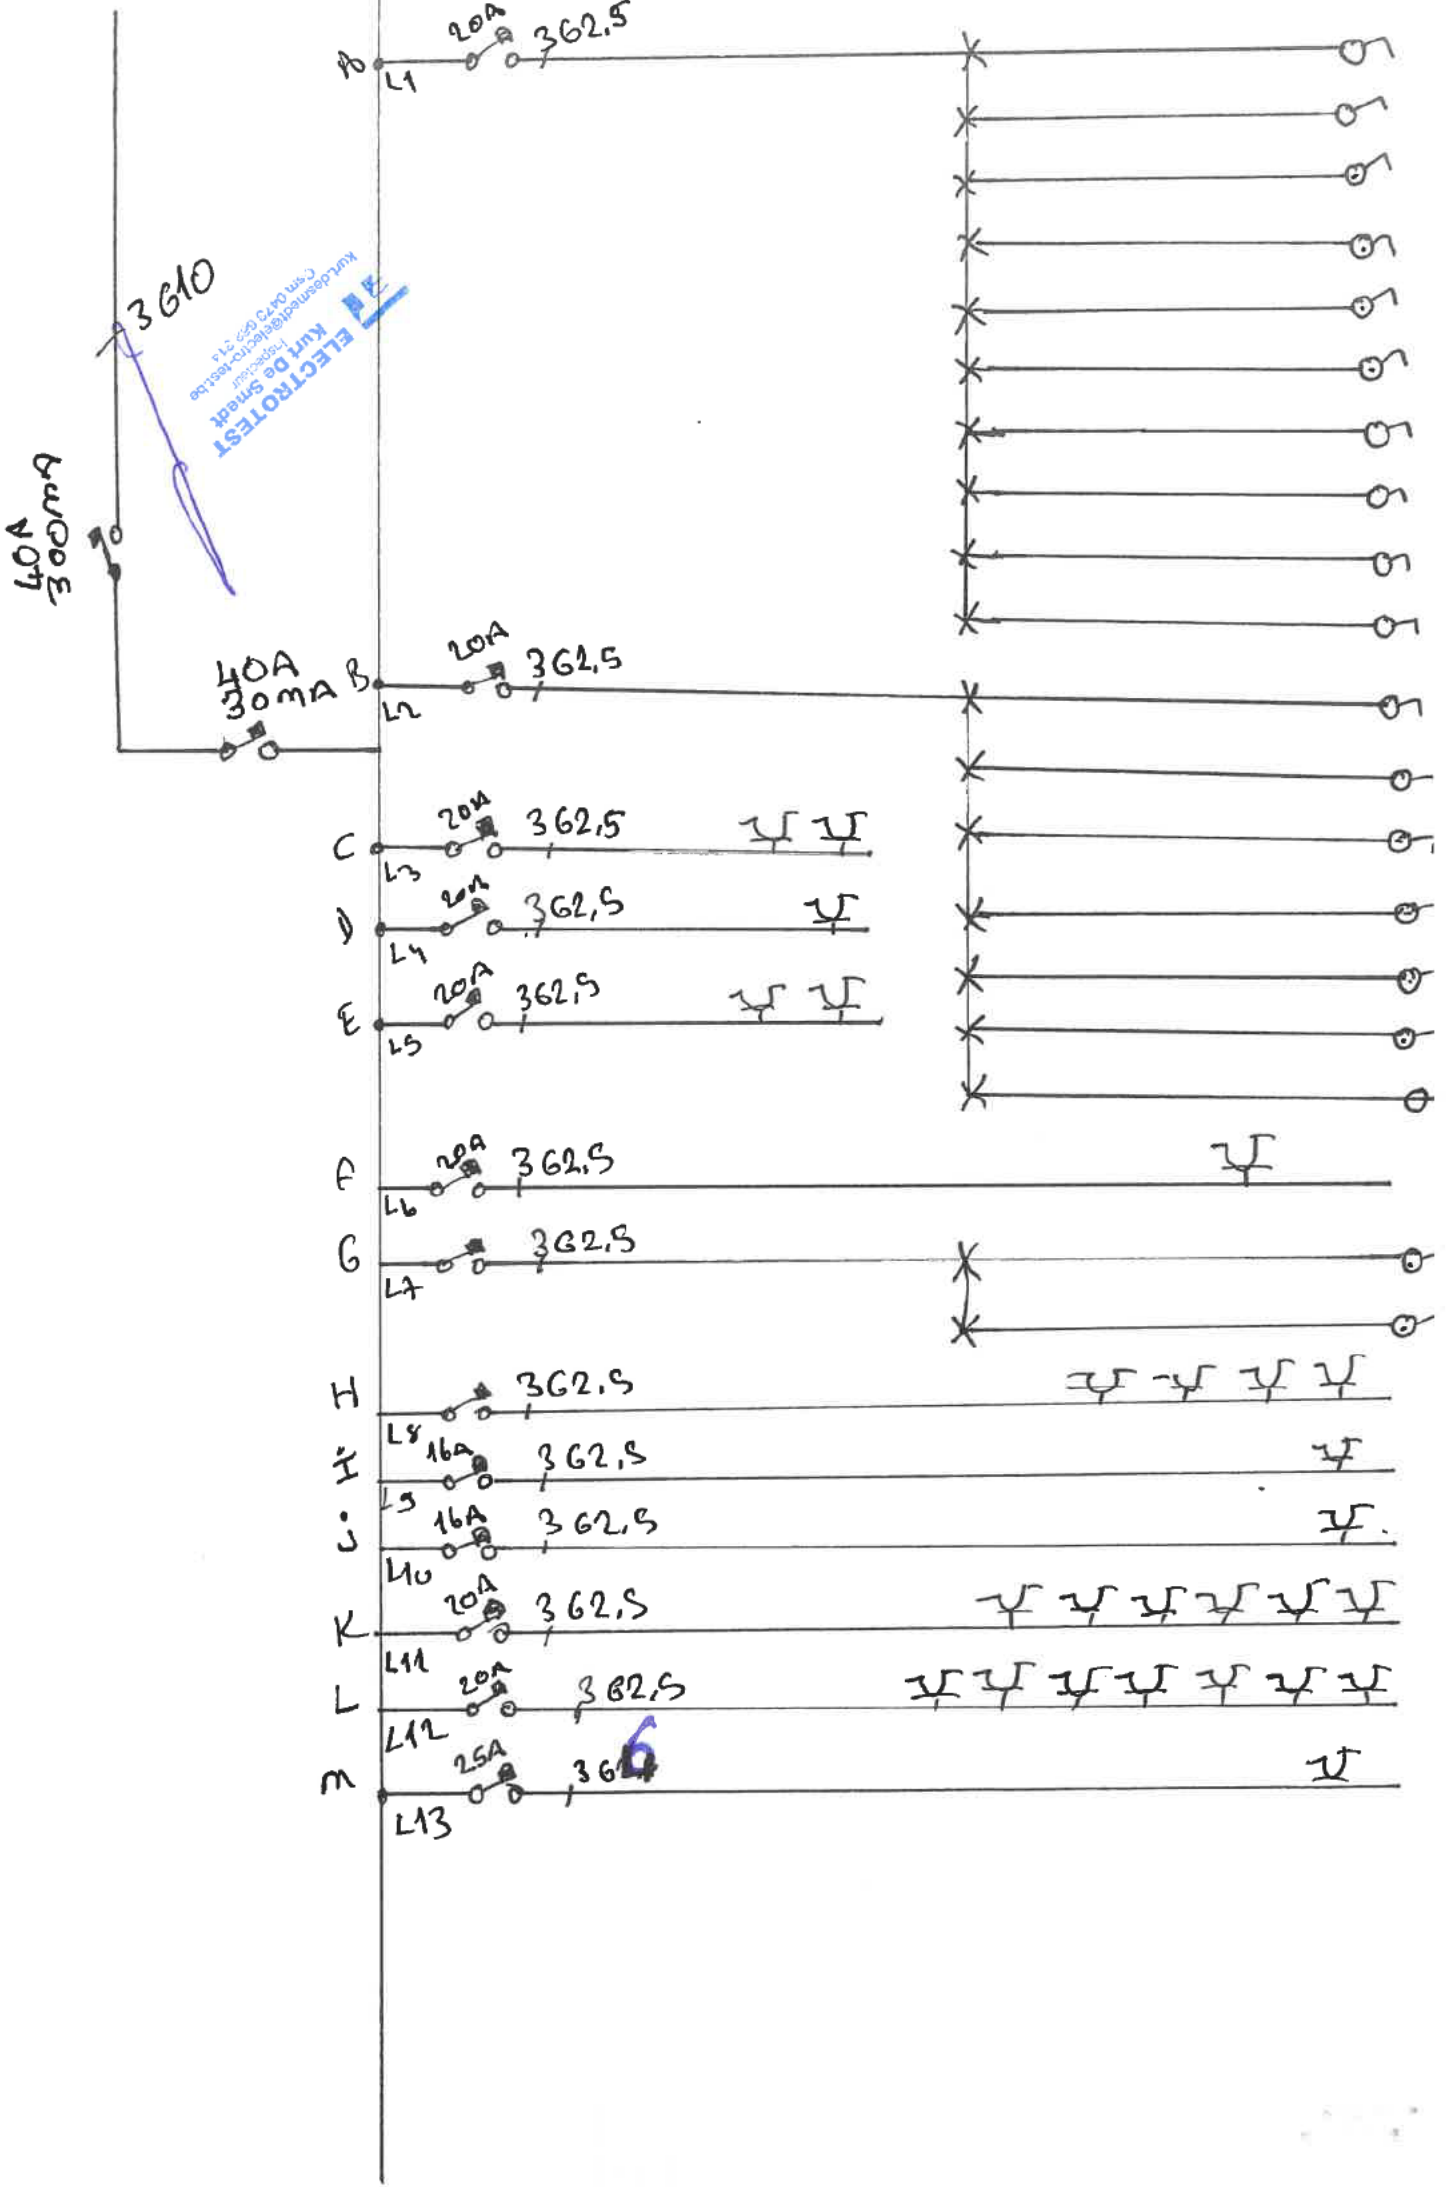 20A
362,5
A
L1
3G10
ELECTROTEST
Kurt De Smedt
Inspecteur
kurt.desmedt@electro-test.be
40A
300mA
20A
3G2,5
B
L2
40A
30mA
20A
3G2,5
C
L3
20A
3G2,5
D
L4
20A
3G2,5
E
L5
20A
3G2,5
F
L6
3G2,5
G
L7
3G2,5
H
L8
16A
3G2,5
I
L9
16A
3G2,5
j
L10
20A
3G2,5
K
L11
20A
3G2,5
L
L12
25A
3G 6
m
L13